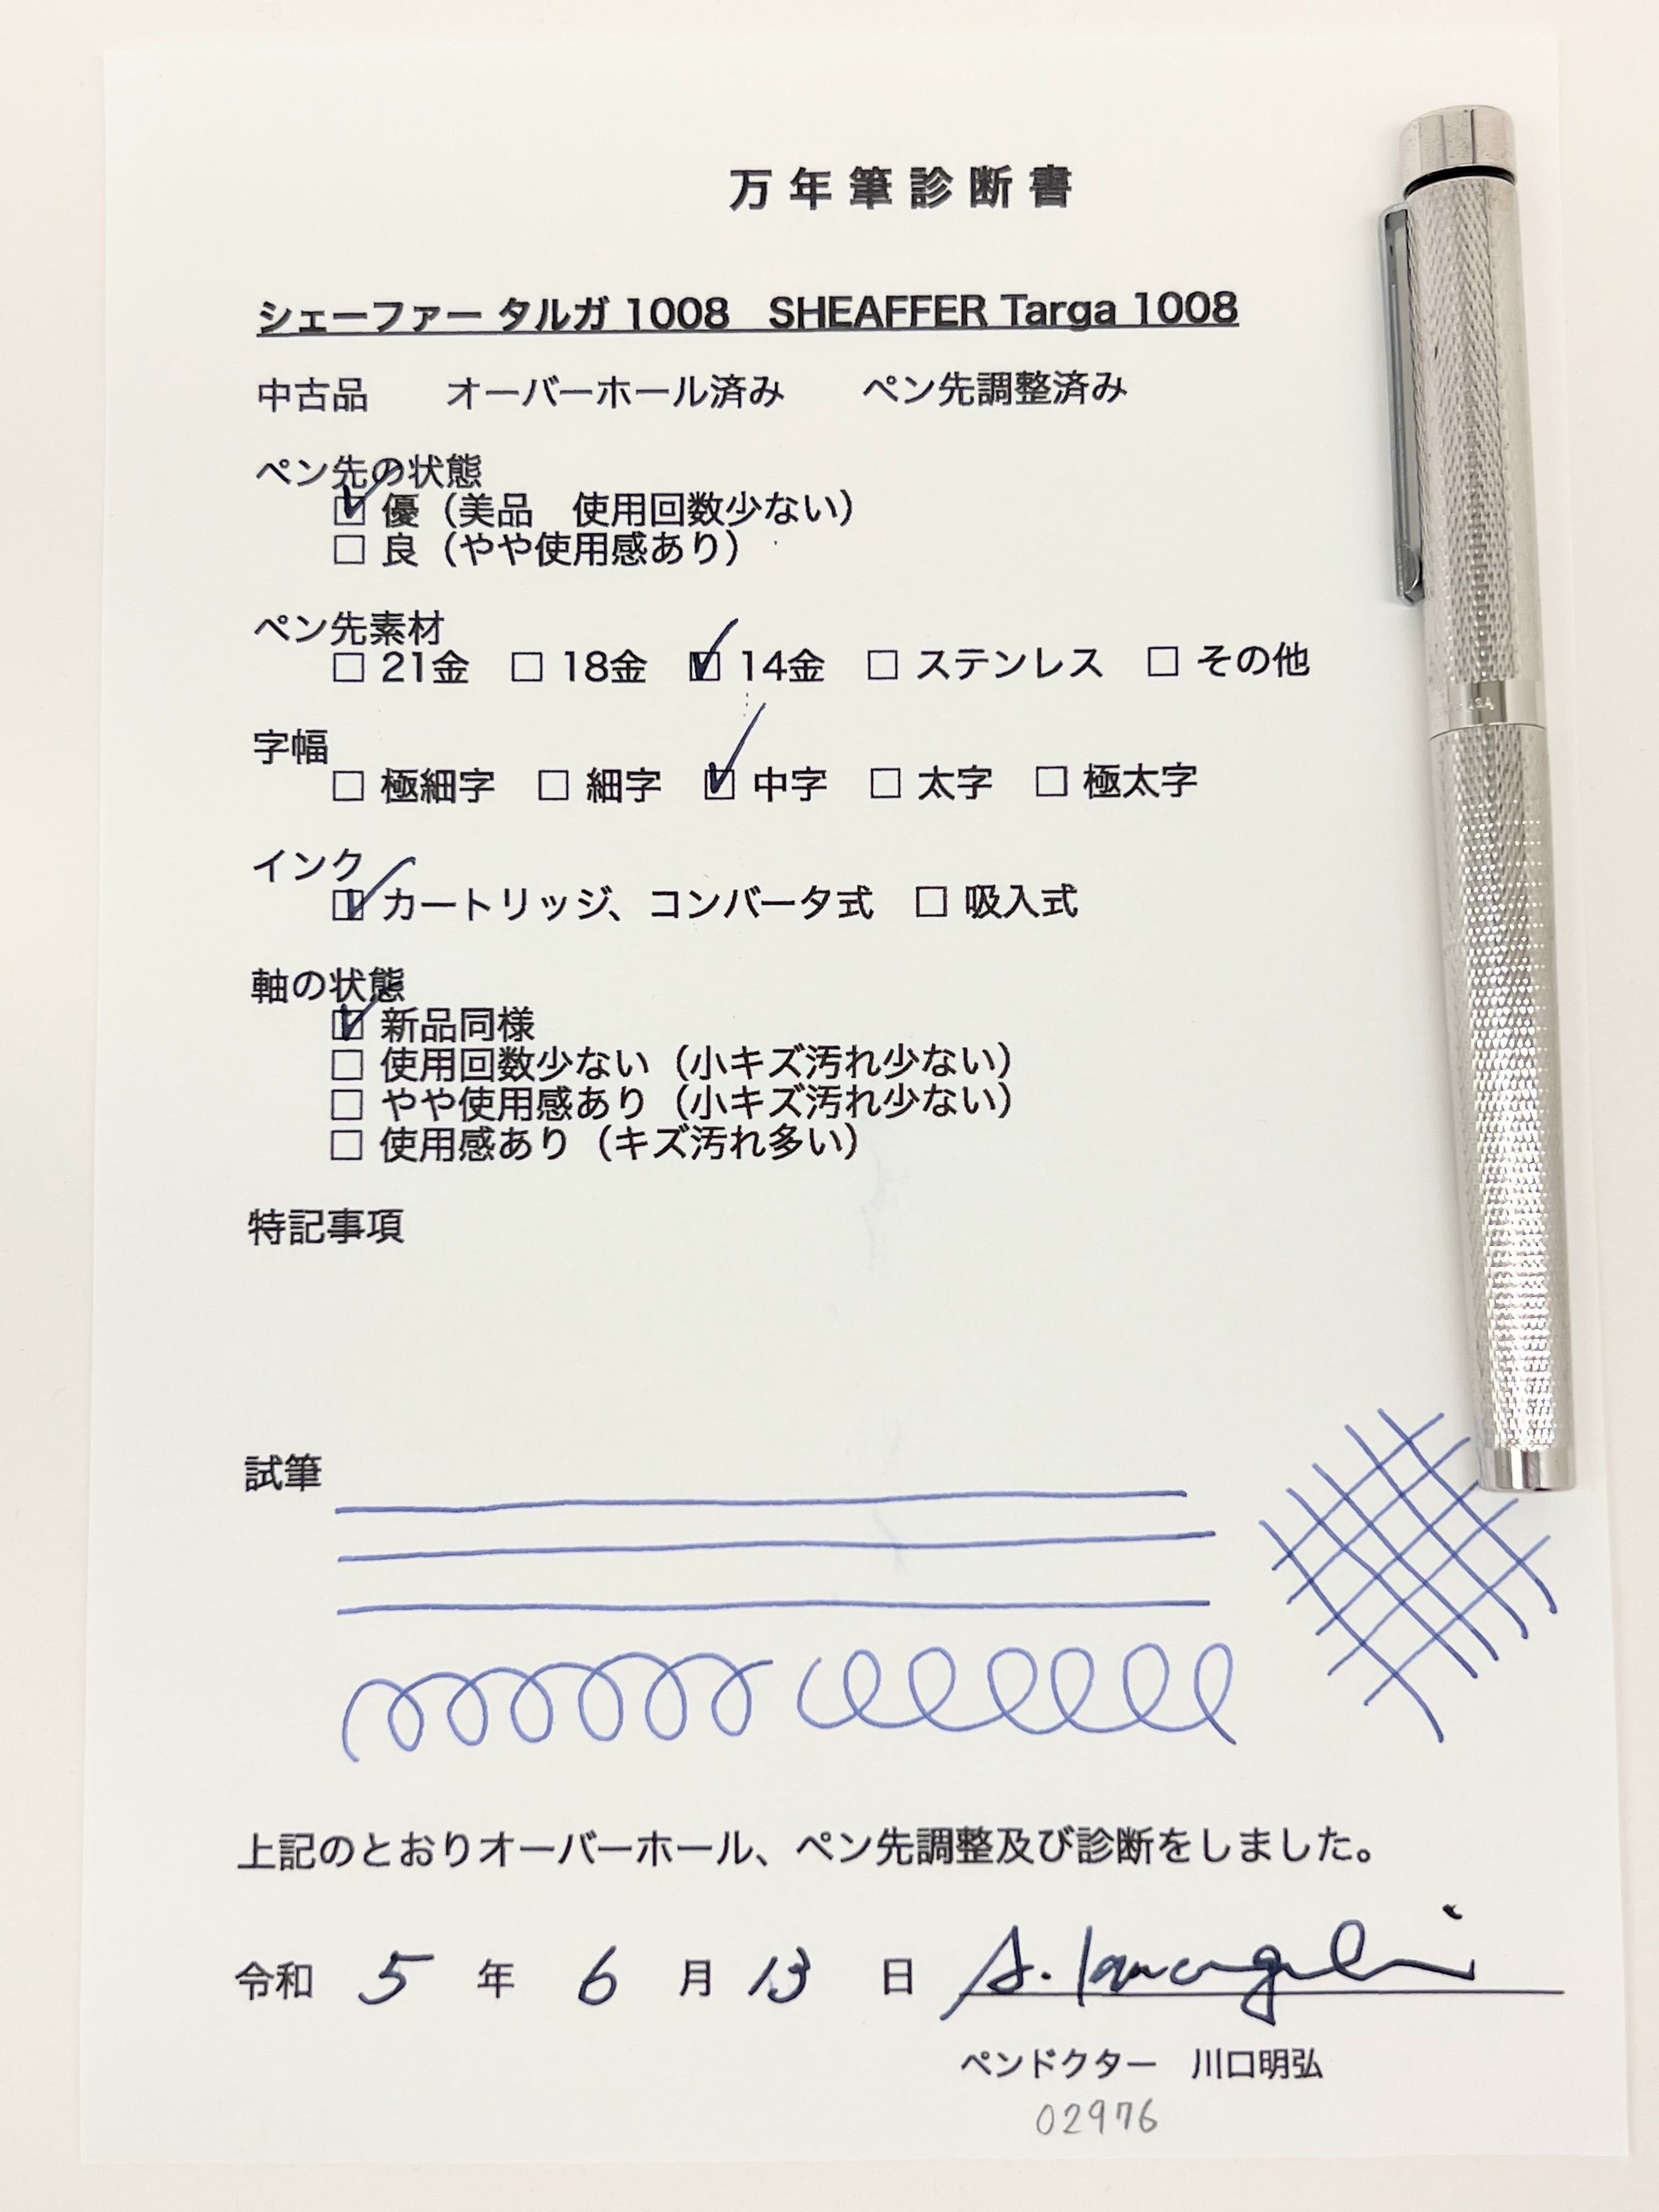 万年筆診断書
シェーファー タルガ 1008　SHEAFFER Targa 1008
中古品　オーバーホール済み　ペン先調整済み
ペン先の状態
☑ 優（美品　使用回数少ない）
□ 良（やや使用感あり）
ペン先素材
□ 21金　□ 18金　☑ 14金　□ ステンレス　□ その他
字幅
□ 極細字　□ 細字　☑ 中字　□ 太字　□ 極太字
インク
☑ カートリッジ、コンバータ式　□ 吸入式
軸の状態
☑ 新品同様
□ 使用回数少ない（小キズ汚れ少ない）
□ やや使用感あり（小キズ汚れ少ない）
□ 使用感あり（キズ汚れ多い）
特記事項
試筆
上記のとおりオーバーホール、ペン先調整及び診断をしました。
令和 5 年 6 月 13 日
ペンドクター　川口明弘
02976